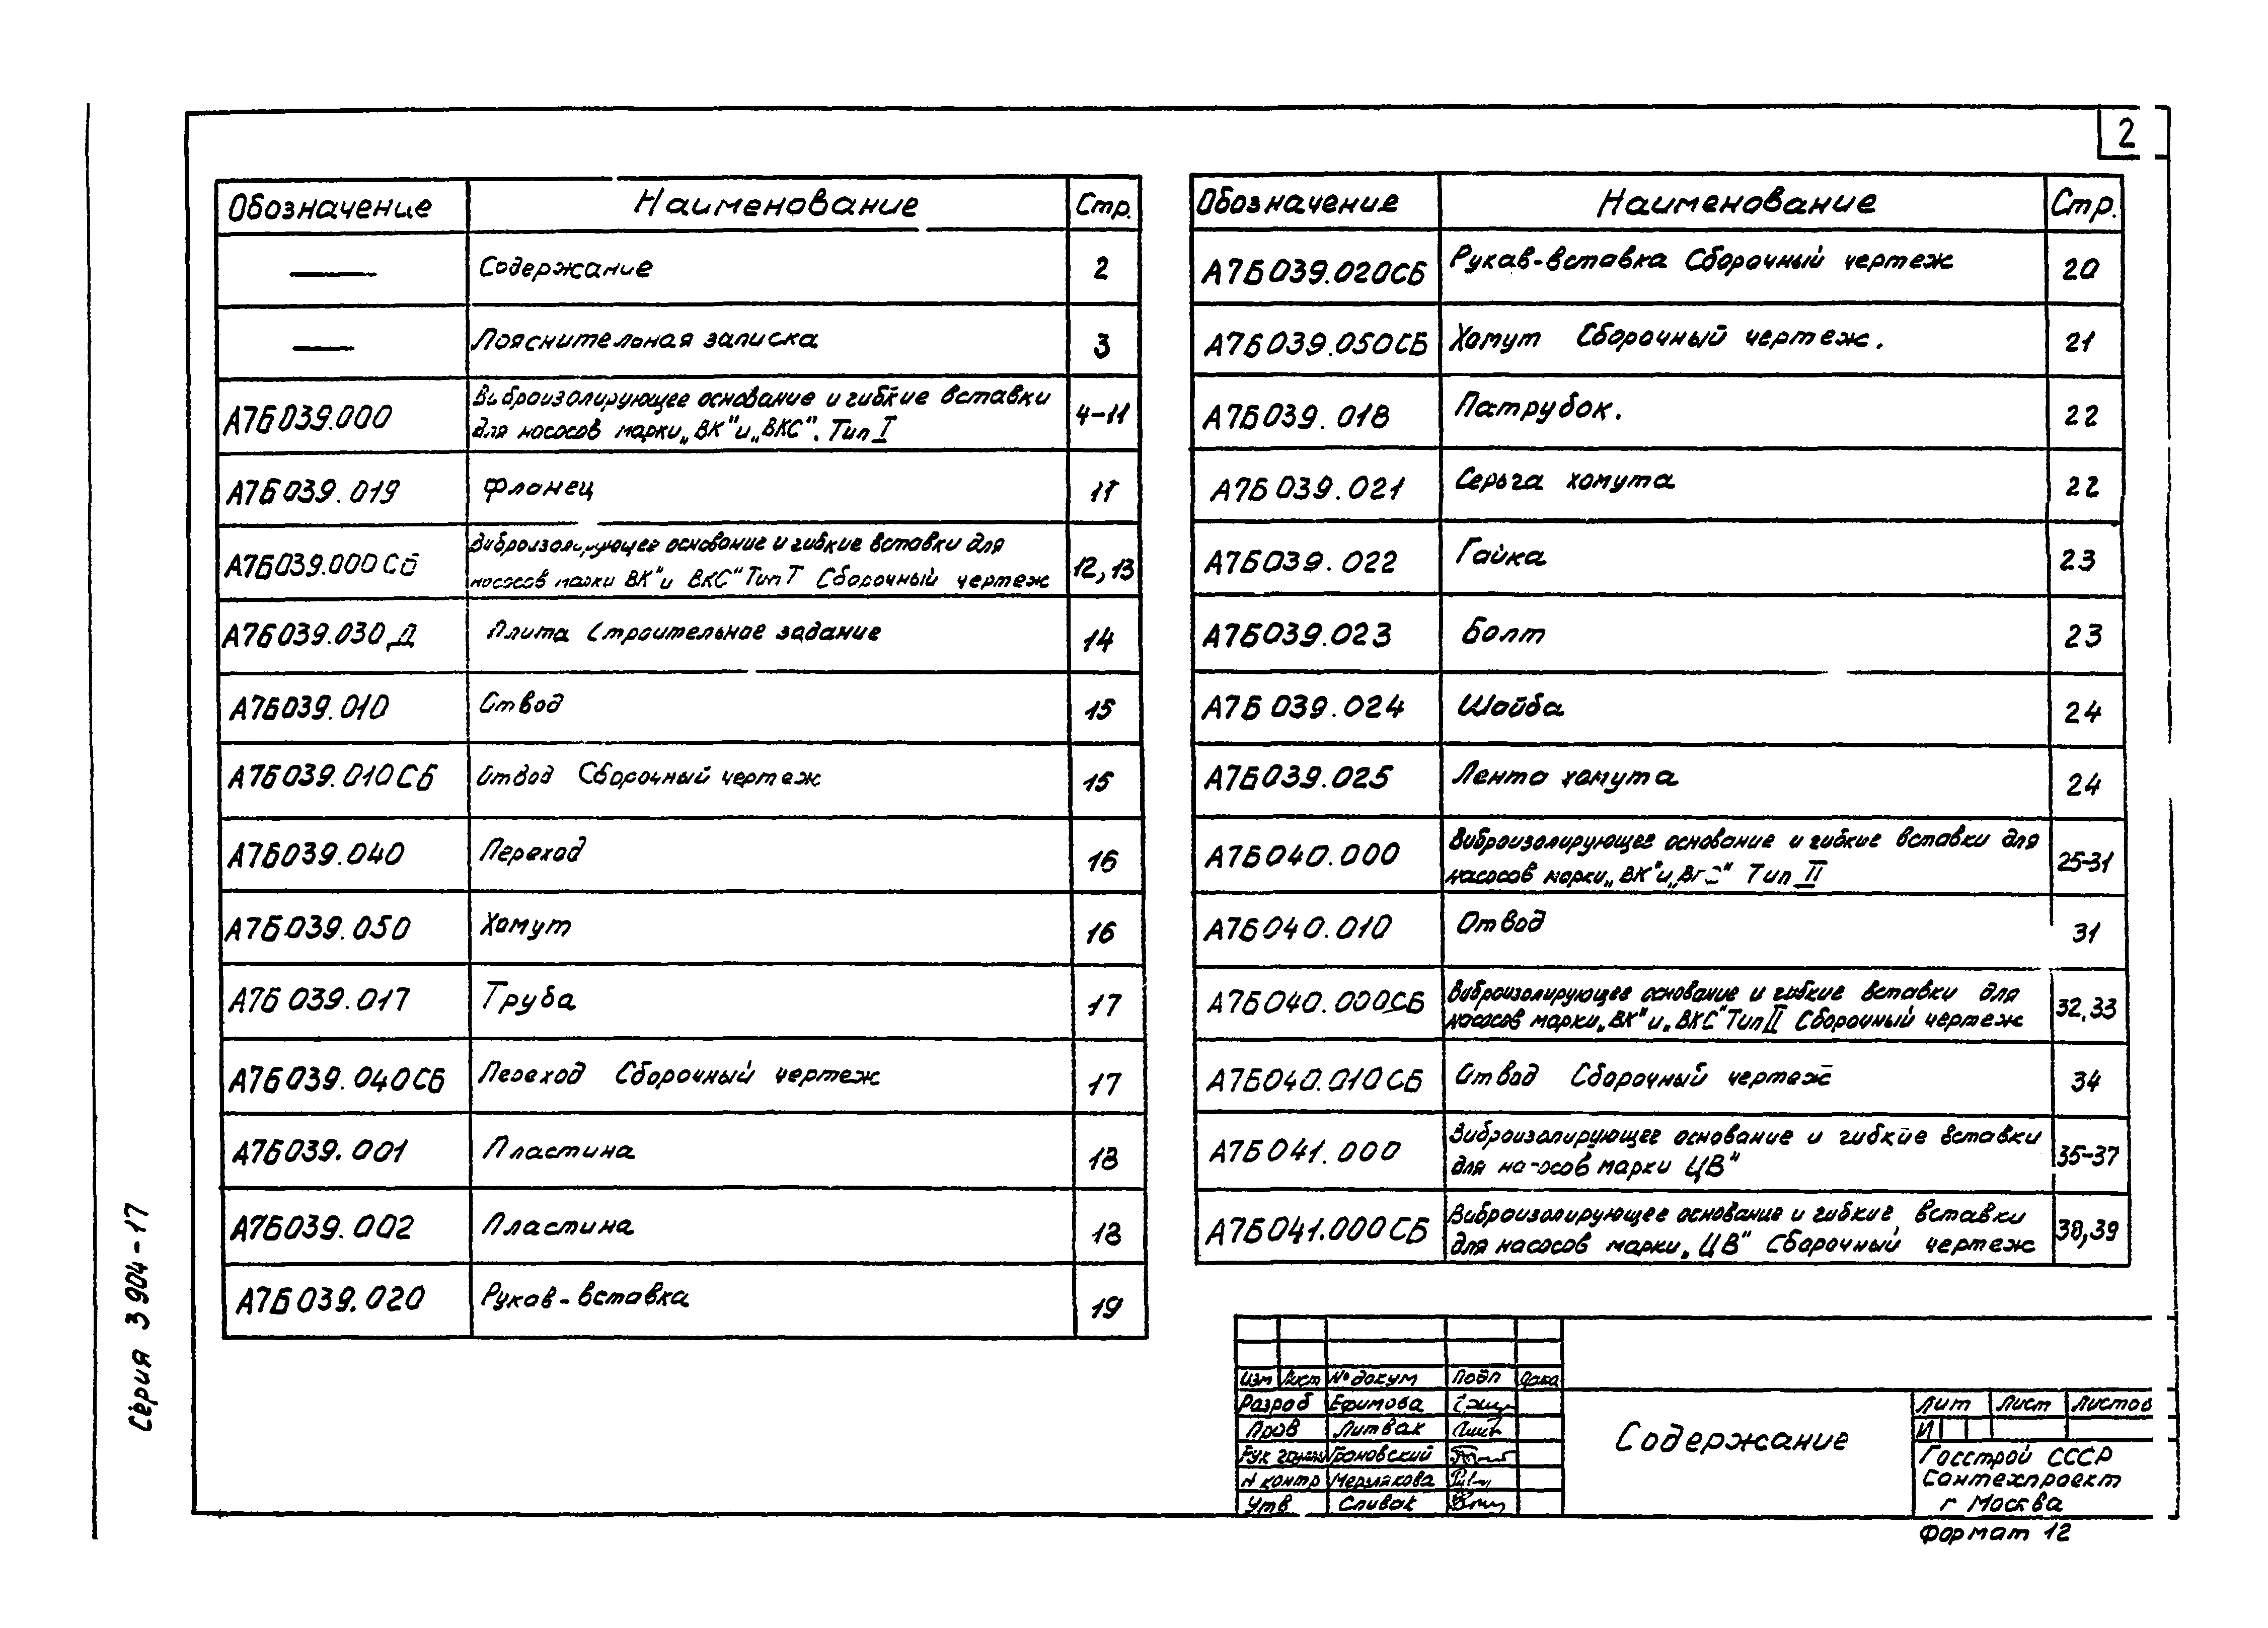 2
Обозначение Наименование Стр.
— Содержание 2
— Пояснительная записка 3
А7Б039.000 Виброизолирующее основание и гибкие вставки 4-11
для насосов марки „ВК" и „ВКС". Тип I
А7Б039.019 Фланец 11
А7Б039.000СБ Виброизолирующее основание и гибкие вставки для 12,13
насосов марки ВК" и ВКС" Тип I Сборочный чертеж
А7Б039.030Д Плита Строительное задание 14
А7Б039.010 Отвод 15
А7Б039.010СБ Отвод Сборочный чертеж 15
А7Б039.040 Переход 16
А7Б039.050 Хомут 16
А7Б039.017 Труба 17
А7Б039.040СБ Переход Сборочный чертеж 17
А7Б039.001 Пластина 18
А7Б039.002 Пластина 18
А7Б039.020 Рукав-вставка 19
Обозначение Наименование Стр.
А7Б039.020СБ Рукав-вставка Сборочный чертеж 20
А7Б039.050СБ Хомут Сборочный чертеж. 21
А7Б039.018 Патрубок. 22
А7Б039.021 Серьга хомута 22
А7Б039.022 Гайка 23
А7Б039.023 Болт 23
А7Б039.024 Шайба 24
А7Б039.025 Лента хомута 24
А7Б040.000 Виброизолирующее основание и гибкие вставки для 25-31
насосов марки „ВК" и „ВКС" Тип II
А7Б040.010 Отвод 31
А7Б040.000СБ Виброизолирующее основание и гибкие вставки для 32,33
насосов марки „ВК" и „ВКС" Тип II Сборочный чертеж
А7Б040.010СБ Отвод Сборочный чертеж 34
А7Б041.000 Виброизолирующее основание и гибкие вставки 35-37
для насосов марки ЦВ"
А7Б041.000СБ Виброизолирующее основание и гибкие вставки 38,39
для насосов марки „ЦВ" Сборочный чертеж
Серия 3 904-17
Изм Лист № докум Подп Дата
Разраб Ефимова
Пров Литвак
Рук группы Грановский
Н контр Мерзлякова
Утв Спивак
Содержание
Лит Лист Листов
И
Госстрой СССР
Сантехпроект
г Москва
Формат 12